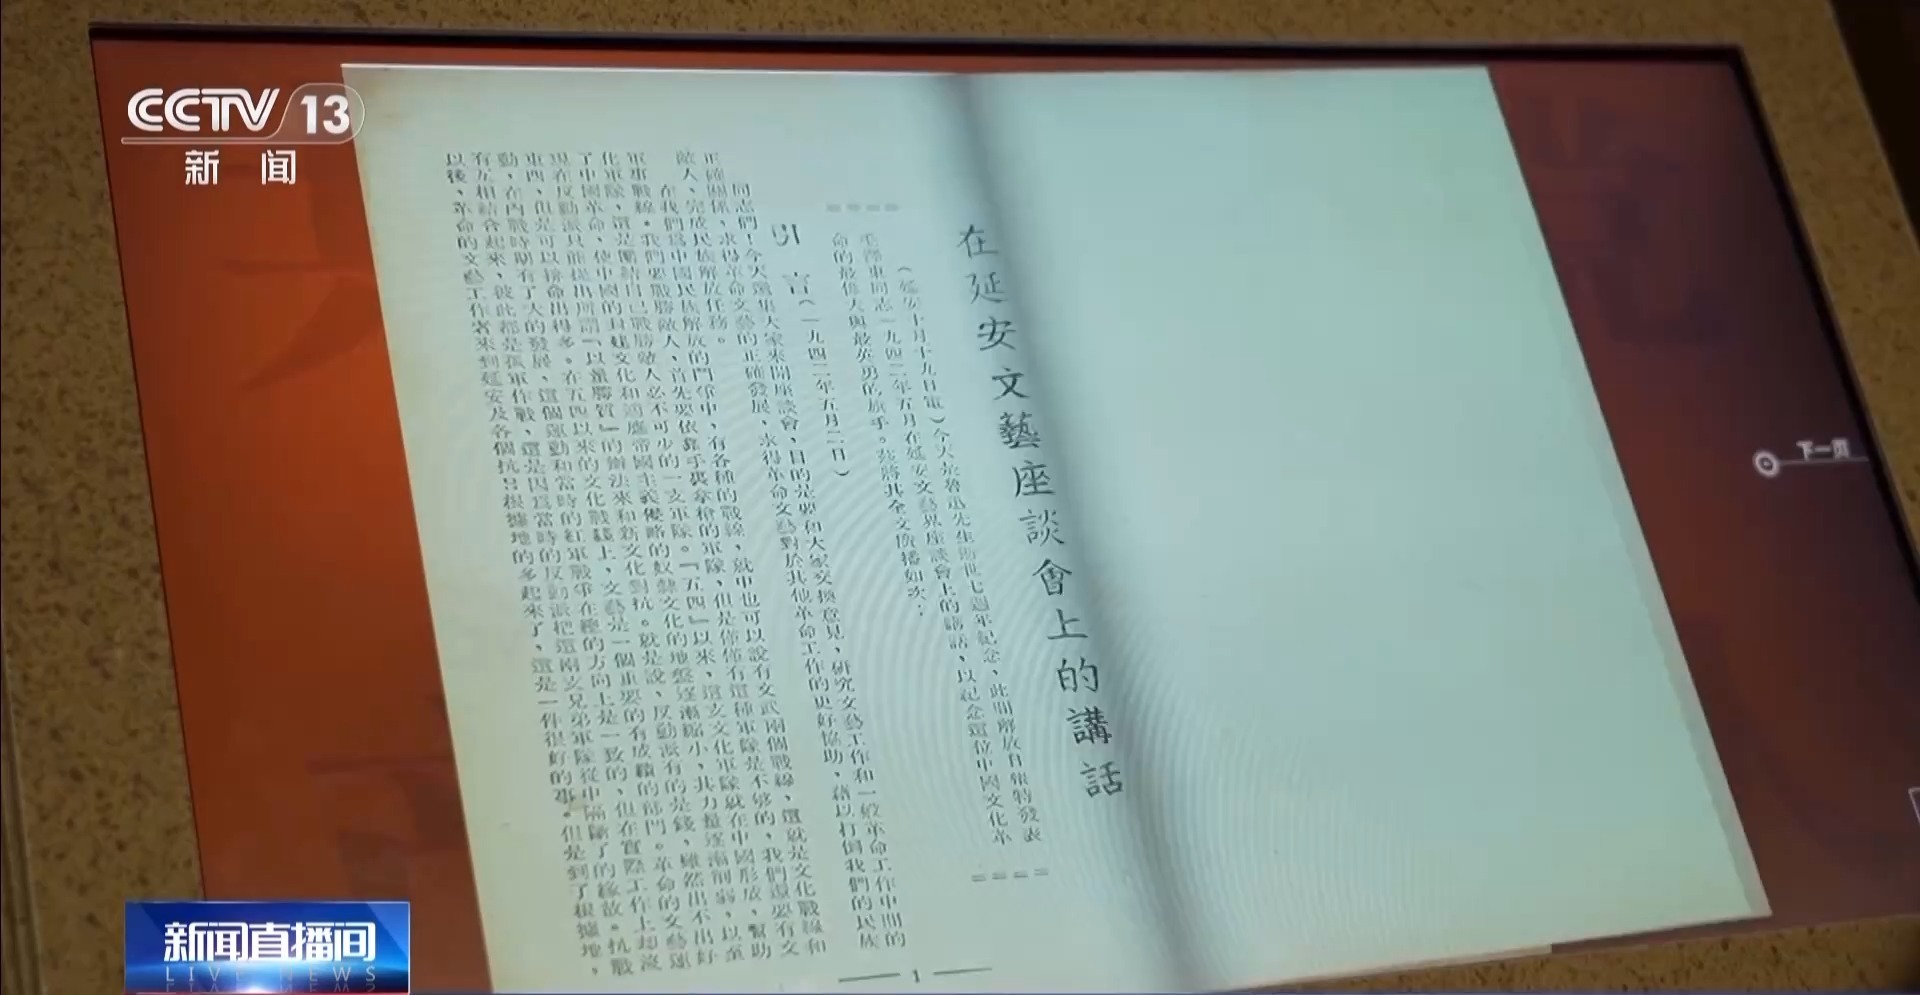 CCTV 13
新 闻
在延安文藝座談會上的講話
（延安十月十九日電）今天是魯迅先生逝世七週年紀念，此間解放日報特發表
毛澤東同志一九四二年五月在延安文藝界座談會上的講話，以紀念這位中國文化革
命的最偉大與最英勇的旗手。茲將其全文廣播如次：
引 言（一九四二年五月二日）
同志們！今天邀集大家來開座談會，目的是要和大家交換意見，研究文藝工作和一般革命工作中間的
正確關係，求得革命文藝的正確發展，求得革命文藝對於其他革命工作的更好協助，藉以打倒我們的民族
敵人，完成民族解放任務。
在我們爲中國民族解放的鬥爭中，有各種的戰線，就中也可以說有文武兩個戰線，這就是文化戰線和
軍事戰線。我們要戰勝敵人，首先要依靠手裏拿槍的軍隊，但是僅僅有這種軍隊是不够的，我們還要有文
化軍隊，這是團結自己戰勝敵人必不可少的一支軍隊。『五四』以來，這支文化軍隊就在中國形成，幫助
了中國革命，使中國的封建文化和適應帝國主義侵略的奴隸文化的地盤逐漸縮小，其力量逐漸削弱，以至
現在反動派只能提出所謂『以量勝質』的辦法來和新文化對抗。就是說，反動派有的是錢，雖然出不出好
東西，但是可以拚命出得多。在五四以來的文化戰綫上，文藝是一個重要的有成績的部門。革命的文藝運
動，在內戰時期有了大的發展，這個運動和當時的紅軍戰爭在總的方向上是一致的，但在實際工作上却沒
有互相結合起來，彼此都是孤軍作戰，這是因爲當時的反動派把這兩支兄弟軍隊從中隔斷了的緣故。抗戰
以後，革命的文藝工作者來到延安及各個抗日根據地的多起來了，這是一件很好的事。但是到了根據地，
1
下一页
新闻直播间
LIVE NEWS